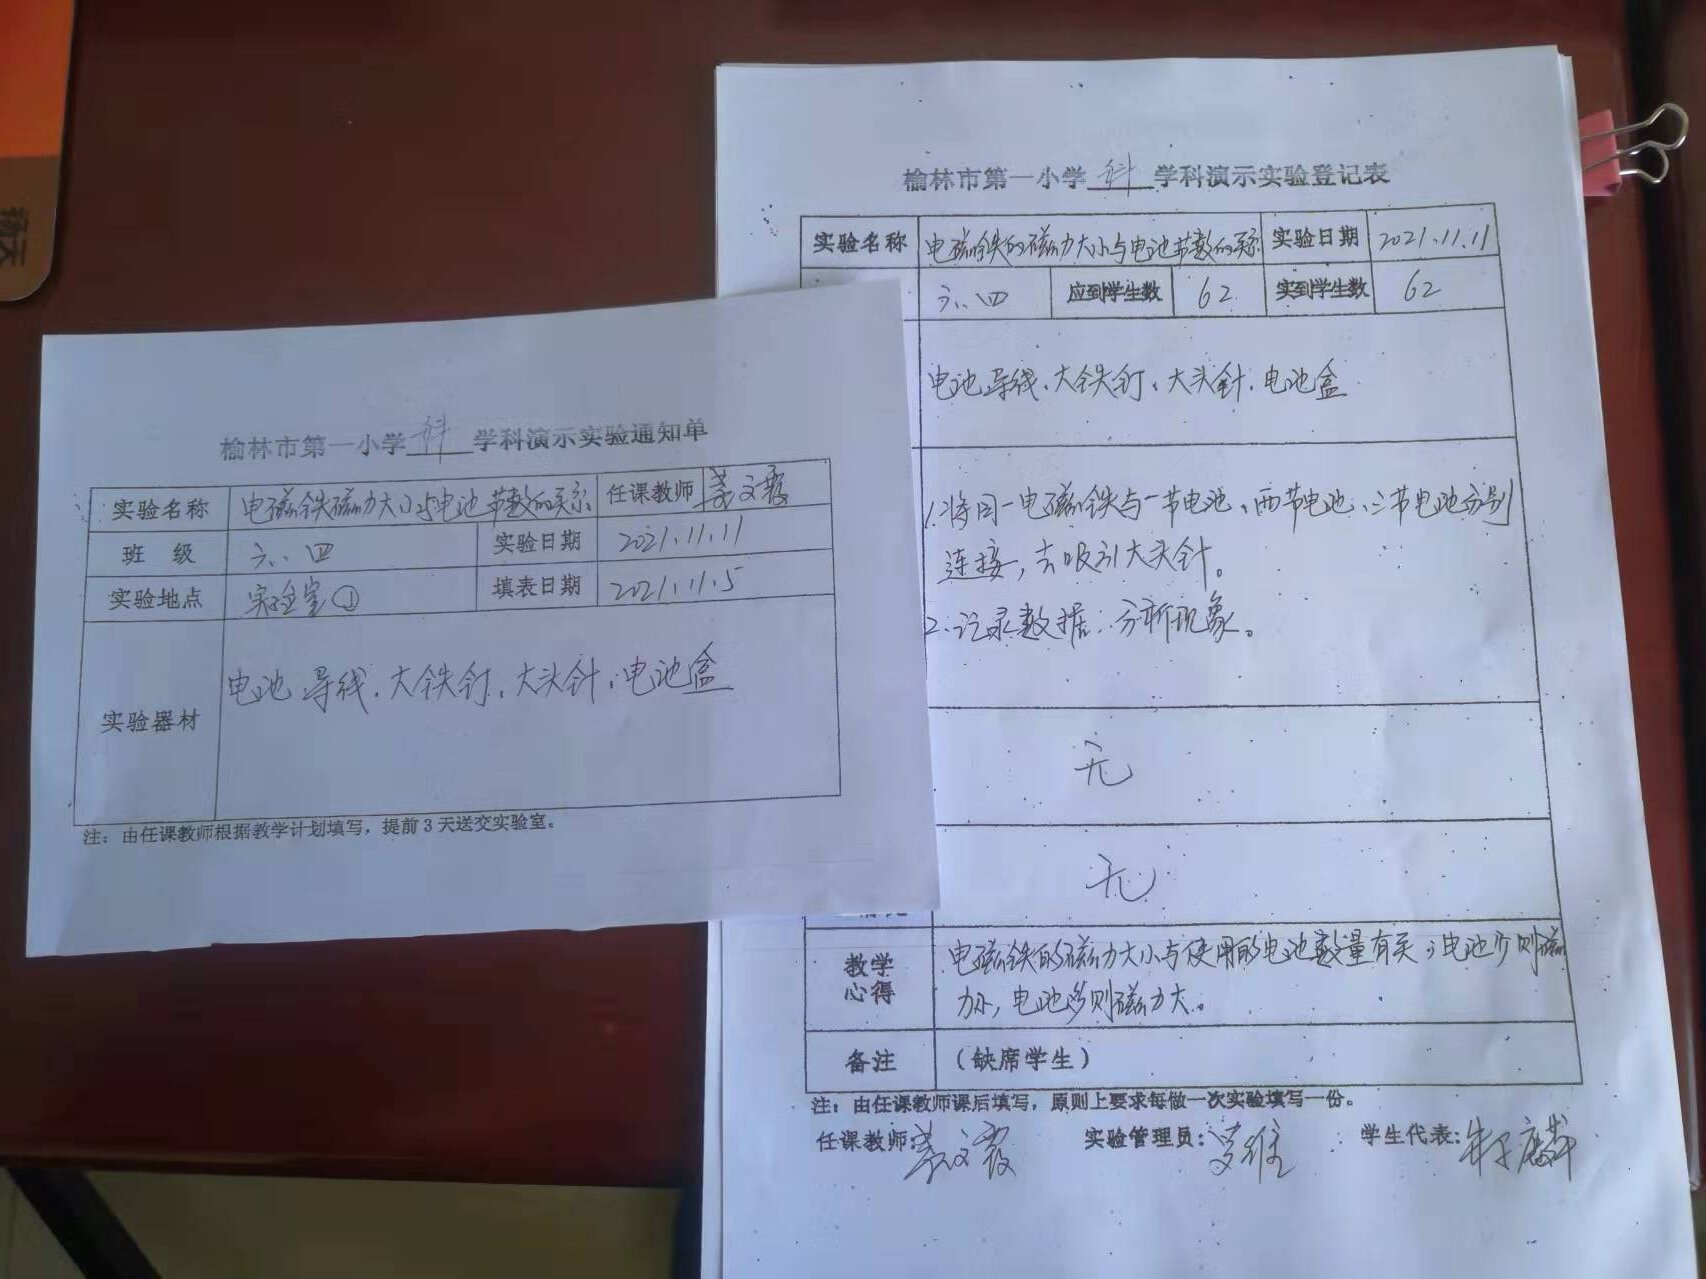 榆林市第一小学 科 学科演示实验通知单
实验名称 电磁铁磁力大小与电池节数的关系 任课教师 文霞
班 级 六、四 实验日期 2021.11.11
实验地点 实验室① 填表日期 2021.11.5
实验器材 电池 导线、大铁钉、大头针、电池盒
注：由任课教师根据教学计划填写，提前3天送交实验室。
榆林市第一小学 科 学科演示实验登记表
实验名称 电磁铁的磁力大小与电池节数的关系 实验日期 2021.11.11
六、四 应到学生数 62 实到学生数 62
电池 导线、大铁钉、大头针、电池盒
1.将同一电磁铁与一节电池、两节电池、三节电池分别
连接，去吸引大头针。
2.记录数据、分析现象。
无
无
教学
心得
电磁铁的磁力大小与使用的电池数量有关，电池少则磁
力小，电池多则磁力大。
备注 （缺席学生）
注：由任课教师课后填写，原则上要求每做一次实验填写一份。
任课教师: 文霞 实验管理员: 维 学生代表: 朱子麟